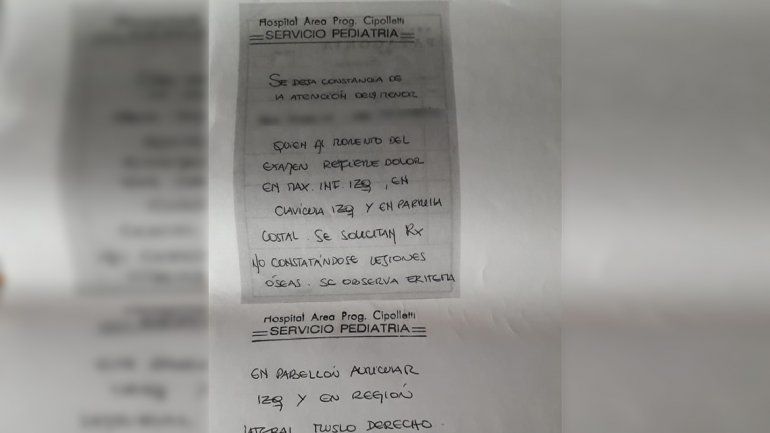 Hospital Area Prog. Cipolletti
SERVICIO PEDIATRIA
SE DEJA CONSTANCIA DE
LA ATENCIÓN DEL MENOR
QUIEN AL MOMENTO DEL
EXAMEN REFIERE DOLOR
EN MAX. INF. IZQ, EN
CLAVICULA IZQ Y EN PARRILLA
COSTAL. SE SOLICITAN RX
NO CONSTATÁNDOSE LESIONES
ÓSEAS. SE OBSERVA ERITEMA
Hospital Area Prog. Cipolletti
SERVICIO PEDIATRIA
EN PABELLÓN AURICULAR
IZQ Y EN REGIÓN
LATERAL MUSLO DERECHO.